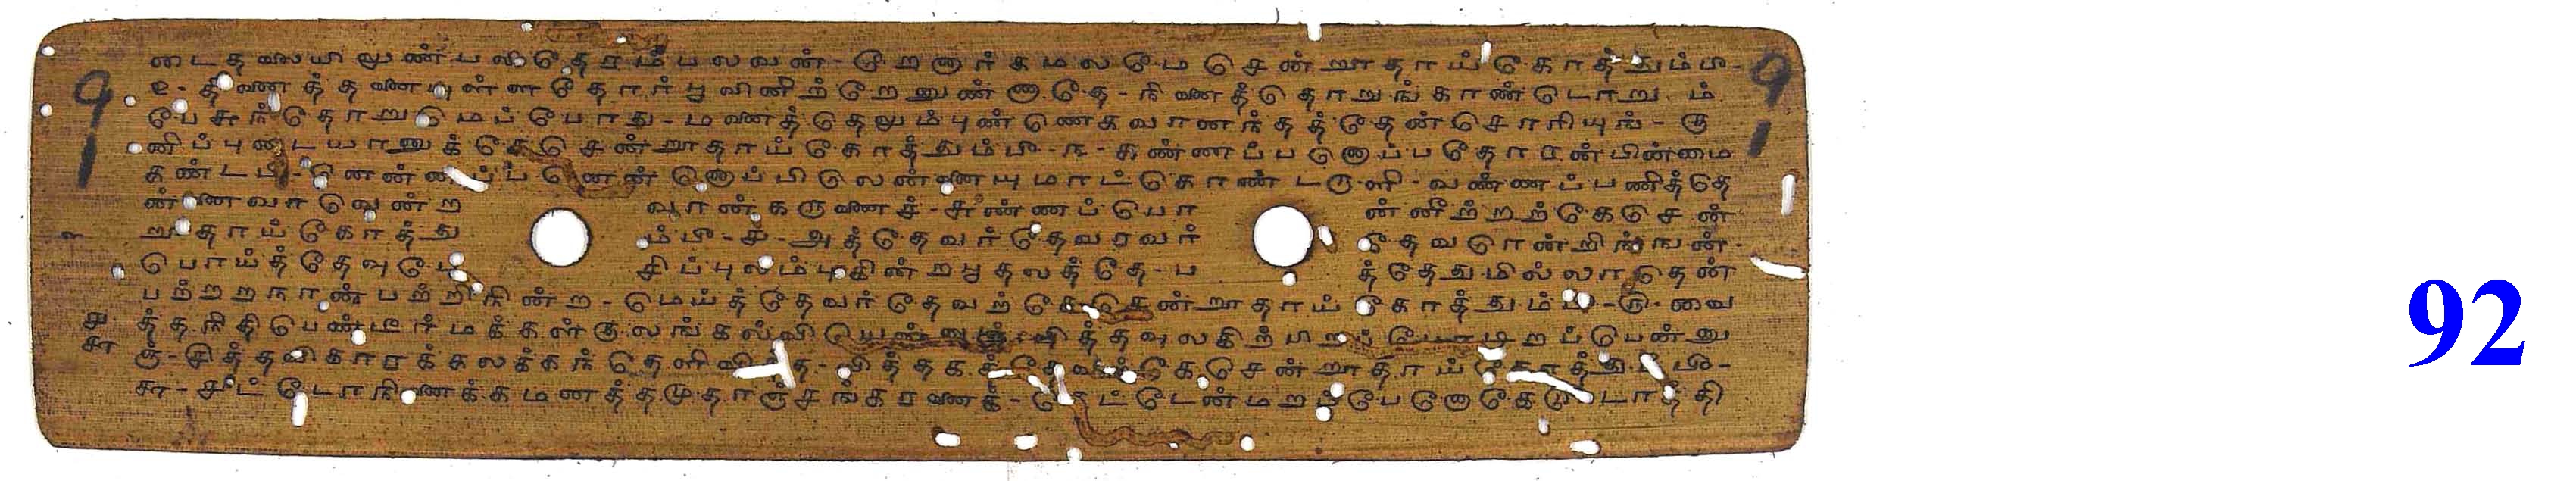 டைதலையிலுண்பலிதேரம்பலவன் - றேனார்கமலமேமசென்றூதாய்கோத்தும்பீ -
உ - தினைத்தனையுள்ளதோர்பூவினிற்றேனுண்ணாதே - நினைத்தொறுங்காண்டொறும்
பேசுந்தொறுமெப்போது - மனைத்தெலும்புண்ணெகவானந்தத்தேன்சொரியுங் - கு
னிப்புடையானுக்கேசென்றூதாய்கோத்தும்பீ - ங - கண்ணப்பனொப்பதோரன்பின்மை
கண்டபி - னென்னப்பனென்னொப்பிலென்னையுமாட்கொண்டருளி - வண்ணப்பணித்தெ
ன்னைவாவென்ற வான்கருணைச் - சுண்ணப்பொ ன்னீற்றற்கேசென்
றூதாய்கோத்து ம்பீ - ச - அத்தேவர்தேவரவர் தேவரென்றிங்ஙன் -
பொய்த்தேவுபே சிப்புலம்புகின்றபூதலத்தே - ப த்தேதுமில்லாதென்
பற்றறநான்பற்றிநின்ற - மெய்த்தேவர்தேவற்கேசென்றூதாய்கோத்தும்பீ - ரு - வை
த்தநிதிபெண்டீர்மக்கள்குலங்கல்வியென்னும் பித்தவுலகிற்பிறப்போடிறப்பென்னு
ஞ் - சித்தவிகாரக்கலக்கந்தெளிவித்த - வித்தகத்தேவற்கேசென்றூதாய்கோத்தும்பீ -
சா - சட்டோநினைக்கமனத்தமுதாஞ்சங்கரனைக் - கெட்டேன்மறப்பேனோகேடுபடாத்தி
92